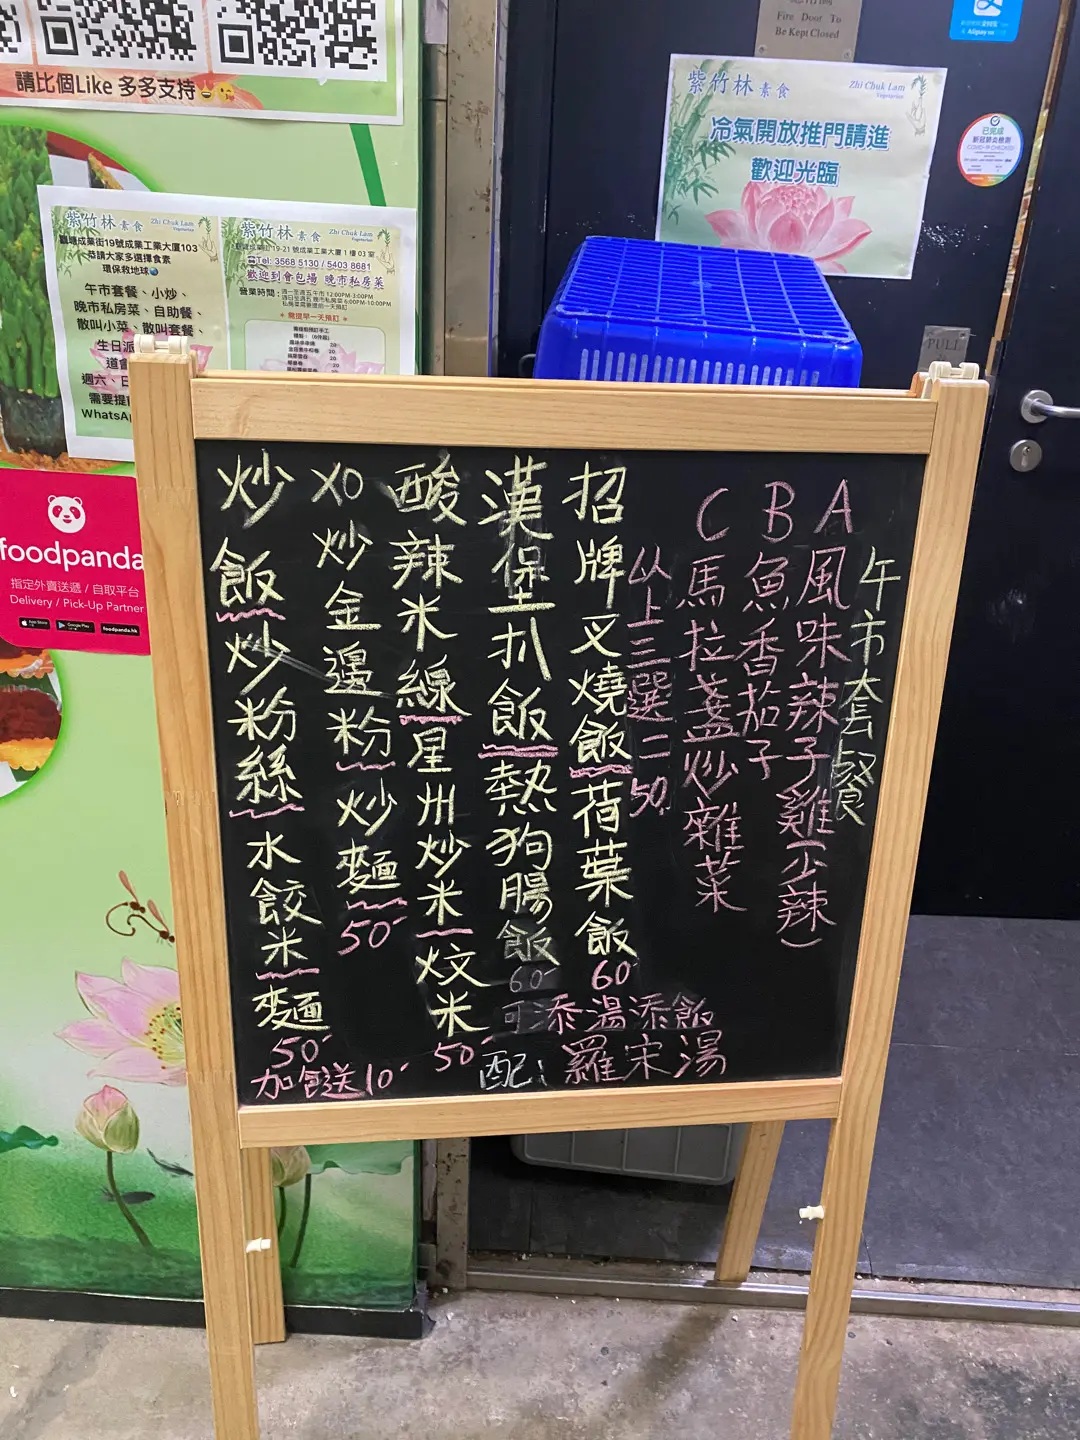 請比個Like 多多支持
紫竹林 素食
Zhi Chuk Lam
Vegetarian
觀塘成業街19號成業工業大廈103
恭請大家多選擇食素
環保救地球
午市套餐、小炒、
晚市私房菜、自助餐、
散叫小菜、散叫套餐、
生日派
道會
週六、日
需要提
WhatsA
紫竹林 素食
Zhi Chuk Lam
Vegetarian
19-21 號成業工業大廈 1 樓 03 室
Tel: 3568 5130 / 5403 8681
歡迎到會包場 晚市私房菜
營業時間:
foodpanda
指定外賣送遞 / 自取平台
Delivery / Pick-Up Partner
App Store
Google Play
foodpanda.hk
Fire Door To
Be Kept Closed
Alipay
紫竹林 素食
Zhi Chuk Lam
Vegetarian
冷氣開放推門請進
歡迎光臨
已完成
新冠肺炎檢測
PULL
午市套餐
A 風味辣子雞(少辣)
B 魚香茄子
C 馬拉盞炒雜菜
以上三選二 50
招牌叉燒飯 荷葉飯 60
漢堡扒飯 熱狗腸飯 60
酸辣米線 星州炒米 炆米 50
XO炒金邊粉 炒麵 50
炒飯 炒粉絲 水餃米麵 50
可添湯添飯
配: 羅宋湯
加餸送10